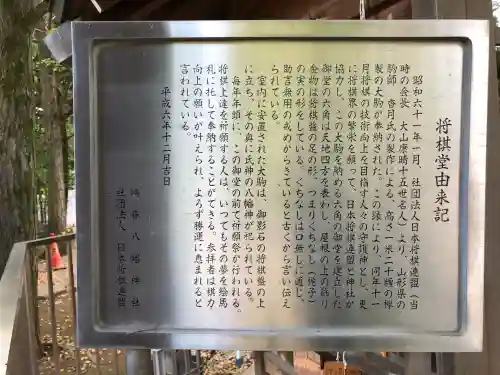 将棋堂由来記
昭和六十一年一月、社団法人日本将棋連盟（当
時の会長　大山康晴十五世名人）より、山形県の
駒師・香月氏の製作による、高さ一米二十糎の欅
製の大駒が奉納された。この縁により、同年十一
月将棋の技術向上を目指す人々の守護神とし、更
に将棋界の繁栄を願って、日本将棋連盟と神社が
協力し、この大駒を納める六角の御堂を建立した。
御堂の六角は天地四方を表わし、屋根の上の飾り
金物は将棋盤の足の形、つまりくちなし（梔子）
の実の形をしている。くちなしは口無しに通じ、
助言無用の戒めからきていると古くから言い伝え
られている。
室内に安置された大駒は、御影石の将棋盤の上
に立ち、その奥に氏神の八幡神が祀られている。
毎年年頭に、この御堂の前で祈願祭が行われる。
将棋上達を祈願する人は、いつでもその夢を絵馬
札に托して奉納することができる。参拝者は棋力
向上の願いが叶えられ、よろず勝運に恵まれると
言われている。
平成六年十二月吉日
鳩森八幡神社
社団法人　日本将棋連盟